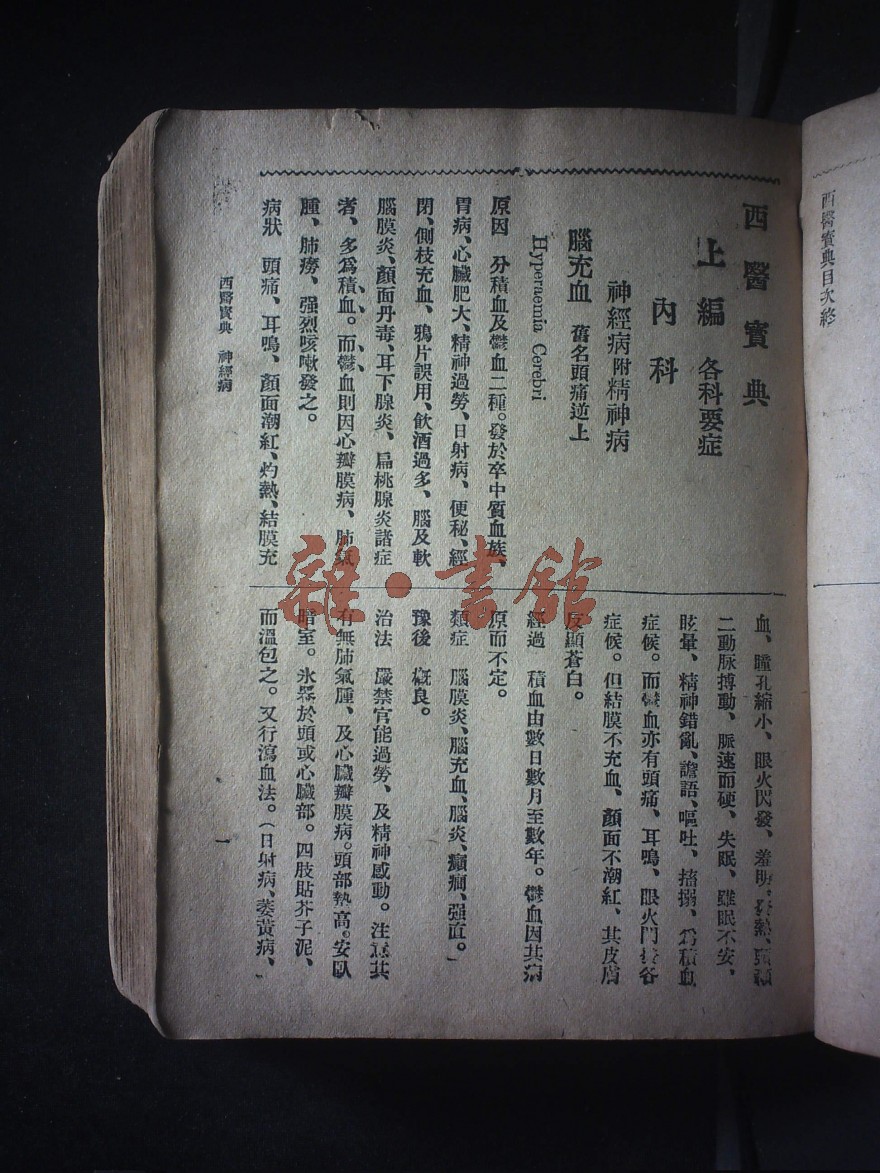 西醫寶典
上編 各科要症
內科
神經病附精神病
腦充血 舊名頭痛逆上
Hyperaemia Cerebri
原因 分積血及鬱血二種。發於卒中質血族、
胃病、心臟肥大、精神過勞、日射病、便秘、經
閉、側枝充血、鴉片誤用、飲酒過多、腦及軟
腦膜炎、顏面丹毒、耳下腺炎、扁桃腺炎諸症
者、多爲積血。而鬱血則因心瓣膜病、肺氣
腫、肺癆、强烈咳嗽發之。
病狀 頭痛、耳鳴、顏面潮紅、灼熱、結膜充
血、瞳孔縮小、眼火閃發、羞明、
二動脉搏動、脈速而硬、失眠、雖眠不安、
眩暈、精神錯亂、譫語、嘔吐、搐搦、爲積血
症候。而鬱血亦有頭痛、耳鳴、眼火
症候。但結膜不充血、顏面不潮紅、其皮膚
反顯蒼白。
經過 積血由數日數月至數年。鬱血因其病
原而不定。
類症 腦膜炎、腦充血、腦炎、癲癇、强直。
豫後 概良。
治法 嚴禁官能過勞、及精神感動。注意其
有無肺氣腫、及心臟瓣膜病。頭部熱高。安臥
暗室。氷罨於頭或心臟部。四肢貼芥子泥、
而溫包之。又行瀉血法。(日射病、萎黃病、
西醫寶典 神經病
一
西醫寶典目次終
雜·書館